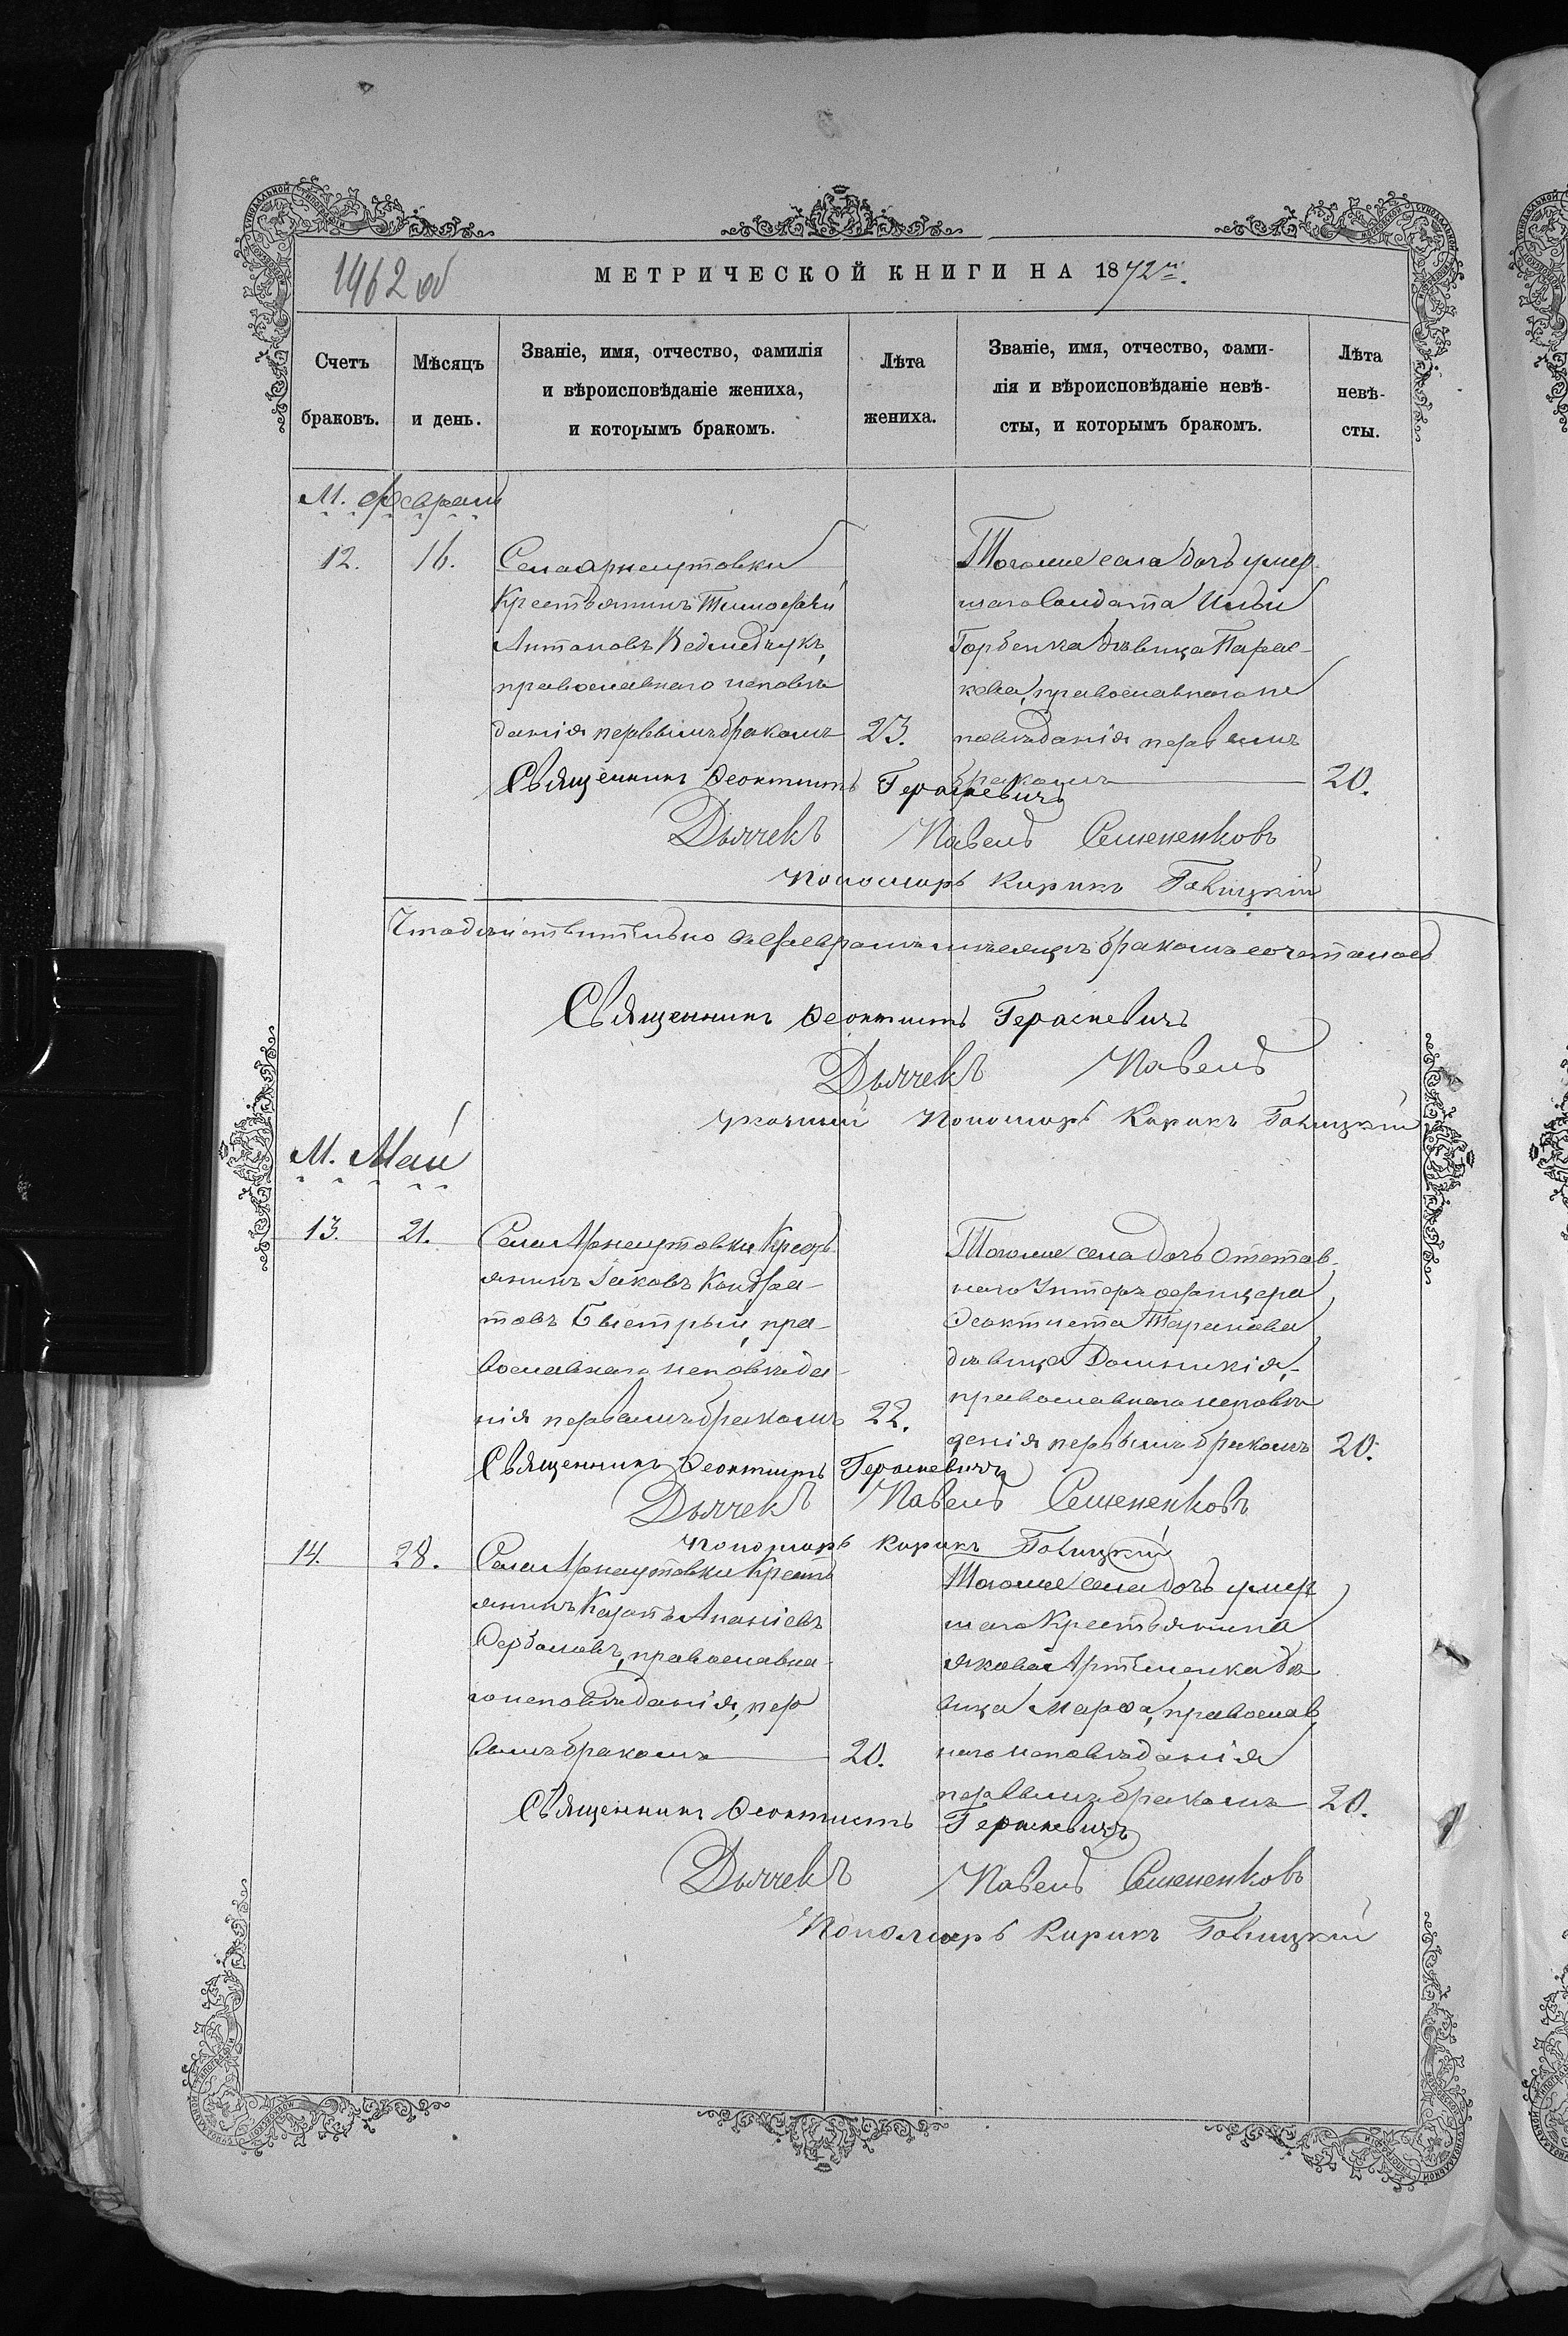 1962 об
МЕТРИЧЕСКОЙ КНИГИ НА 1872 г.
Счетъ браковъ.
Мѣсяцъ и день.
Званіе, имя, отчество, фамилія
и вѣроисповѣданіе жениха,
и которымъ бракомъ.
Лѣта жениха.
Званіе, имя, отчество, фами-
лія и вѣроисповѣданіе невѣ-
сты, и которымъ бракомъ.
Лѣта невѣ-
сты.
М. Февраль
12. 16.
Села Арнаутовки
Крестьянинъ Тимофей
Антоновъ Ведмедчукъ,
православнаго исповѣ
данія первымъ бракомъ 23.
Тогоже села дочь умер
шаго Солдата Ильи
Горбенка дѣвица Парас-
кева, православнаго ис
повѣданія первымъ
бракомъ 20.
Священникъ Феоктистъ Гераскевичъ
Дьячекъ Павелъ Семененковъ
Пономарь Кирикъ Говицкій
Что дѣйствительно въ февралѣ мѣсяцѣ бракомъ сочетались
Священникъ Феоктистъ Гераскевичъ
Дьячекъ Павелъ
Пономарь Кирикъ Говицкій
М. Май
13. 21.
Села Арнаутовки Кресть
янинъ Іаковъ Кондра-
товъ Быстрый, пра-
вославнаго исповѣда-
нія первымъ бракомъ 22.
Тогоже села дочь Отстав
наго Унтеръ офицера
Феоктиста Таранова
дѣвица Домникія,
православнаго исповѣ
данія первымъ бракомъ 20.
Священникъ Феоктистъ Гераскевичъ
Дьячекъ Павелъ Семененковъ
Пономарь Кирикъ Говицкій
14. 28.
Села Арнаутовки Кресть
янинъ Карпъ Ананіевъ
православна
го исповѣданія, пер
вымъ бракомъ 20.
Тогоже села дочь умер
шаго Крестьянина
Якова Артеменка дѣ
вица Марфа, православ
наго исповѣданія
первымъ бракомъ 20.
Священникъ Феоктистъ Гераскевичъ
Дьячекъ Павелъ Семененковъ
Пономарь Кирикъ Говицкій